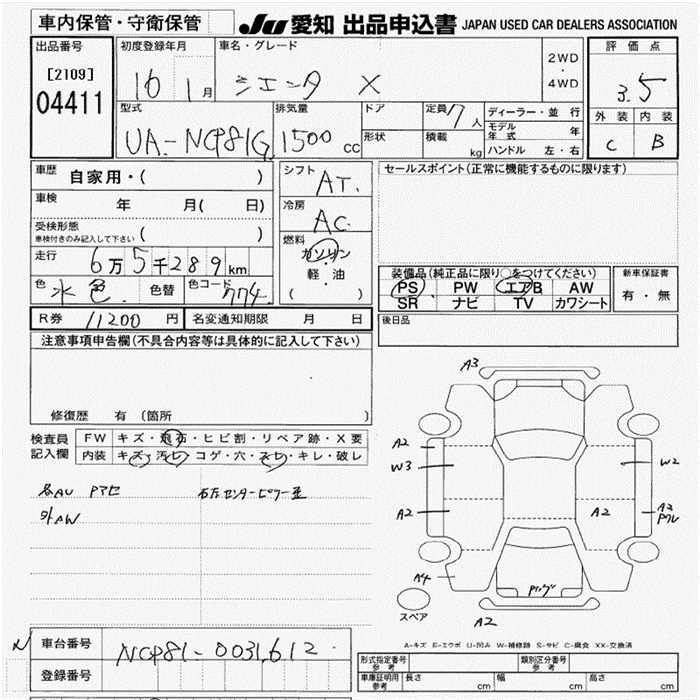 車内保管・守衛保管
JU 愛知 出品申込書 JAPAN USED CAR DEALERS ASSOCIATION
出品番号
[2109]
04411
初度登録年月
16 1月
車名・グレード
シエンタ X
2WD
・
4WD
評価点
3.5
外装 内装
C B
型式
UA-NCP81G
排気量
1500 cc
ドア
形状
定員 7人
積載 kg
ディーラー・並行
モデル年式 年
ハンドル 左・右
車歴 自家用・( )
車検 年 月( 日)
受検形態
車検付きのみ記入して下さい ( )
走行 6万5千289km
色 水色 色替 色コード 774
シフト AT.
冷房 AC.
燃料
ガソリン
・
軽・油
( )
セールスポイント(正常に機能するものに限ります)
装備品(純正品に限り○をつけてください)
PS PW エアB AW
SR ナビ TV カワシート
新車保証書
有・無
R券 11200 円 名変通知期限 月 日
後日品
注意事項申告欄(不具合内容等は具体的に記入して下さい)
修復歴 有 〔箇所 〕
検査員記入欄
FW キズ・飛石・ヒビ割・リペア跡・X要
内装 キズ・汚レ・コゲ・穴・スレ・キレ・破レ
外AW
A3
A2
W3
A2
A4
W2
A2
A2
A2
スペア
A-キズ E-エクボ U-凹み W-補修跡 S-サビ C-腐食 XX-交換済
車台番号 NCP81-0031612
登録番号
形式指定番号 参考
類別区分番号 参考
車庫証明用 参考 長さ cm 幅 cm 高さ cm